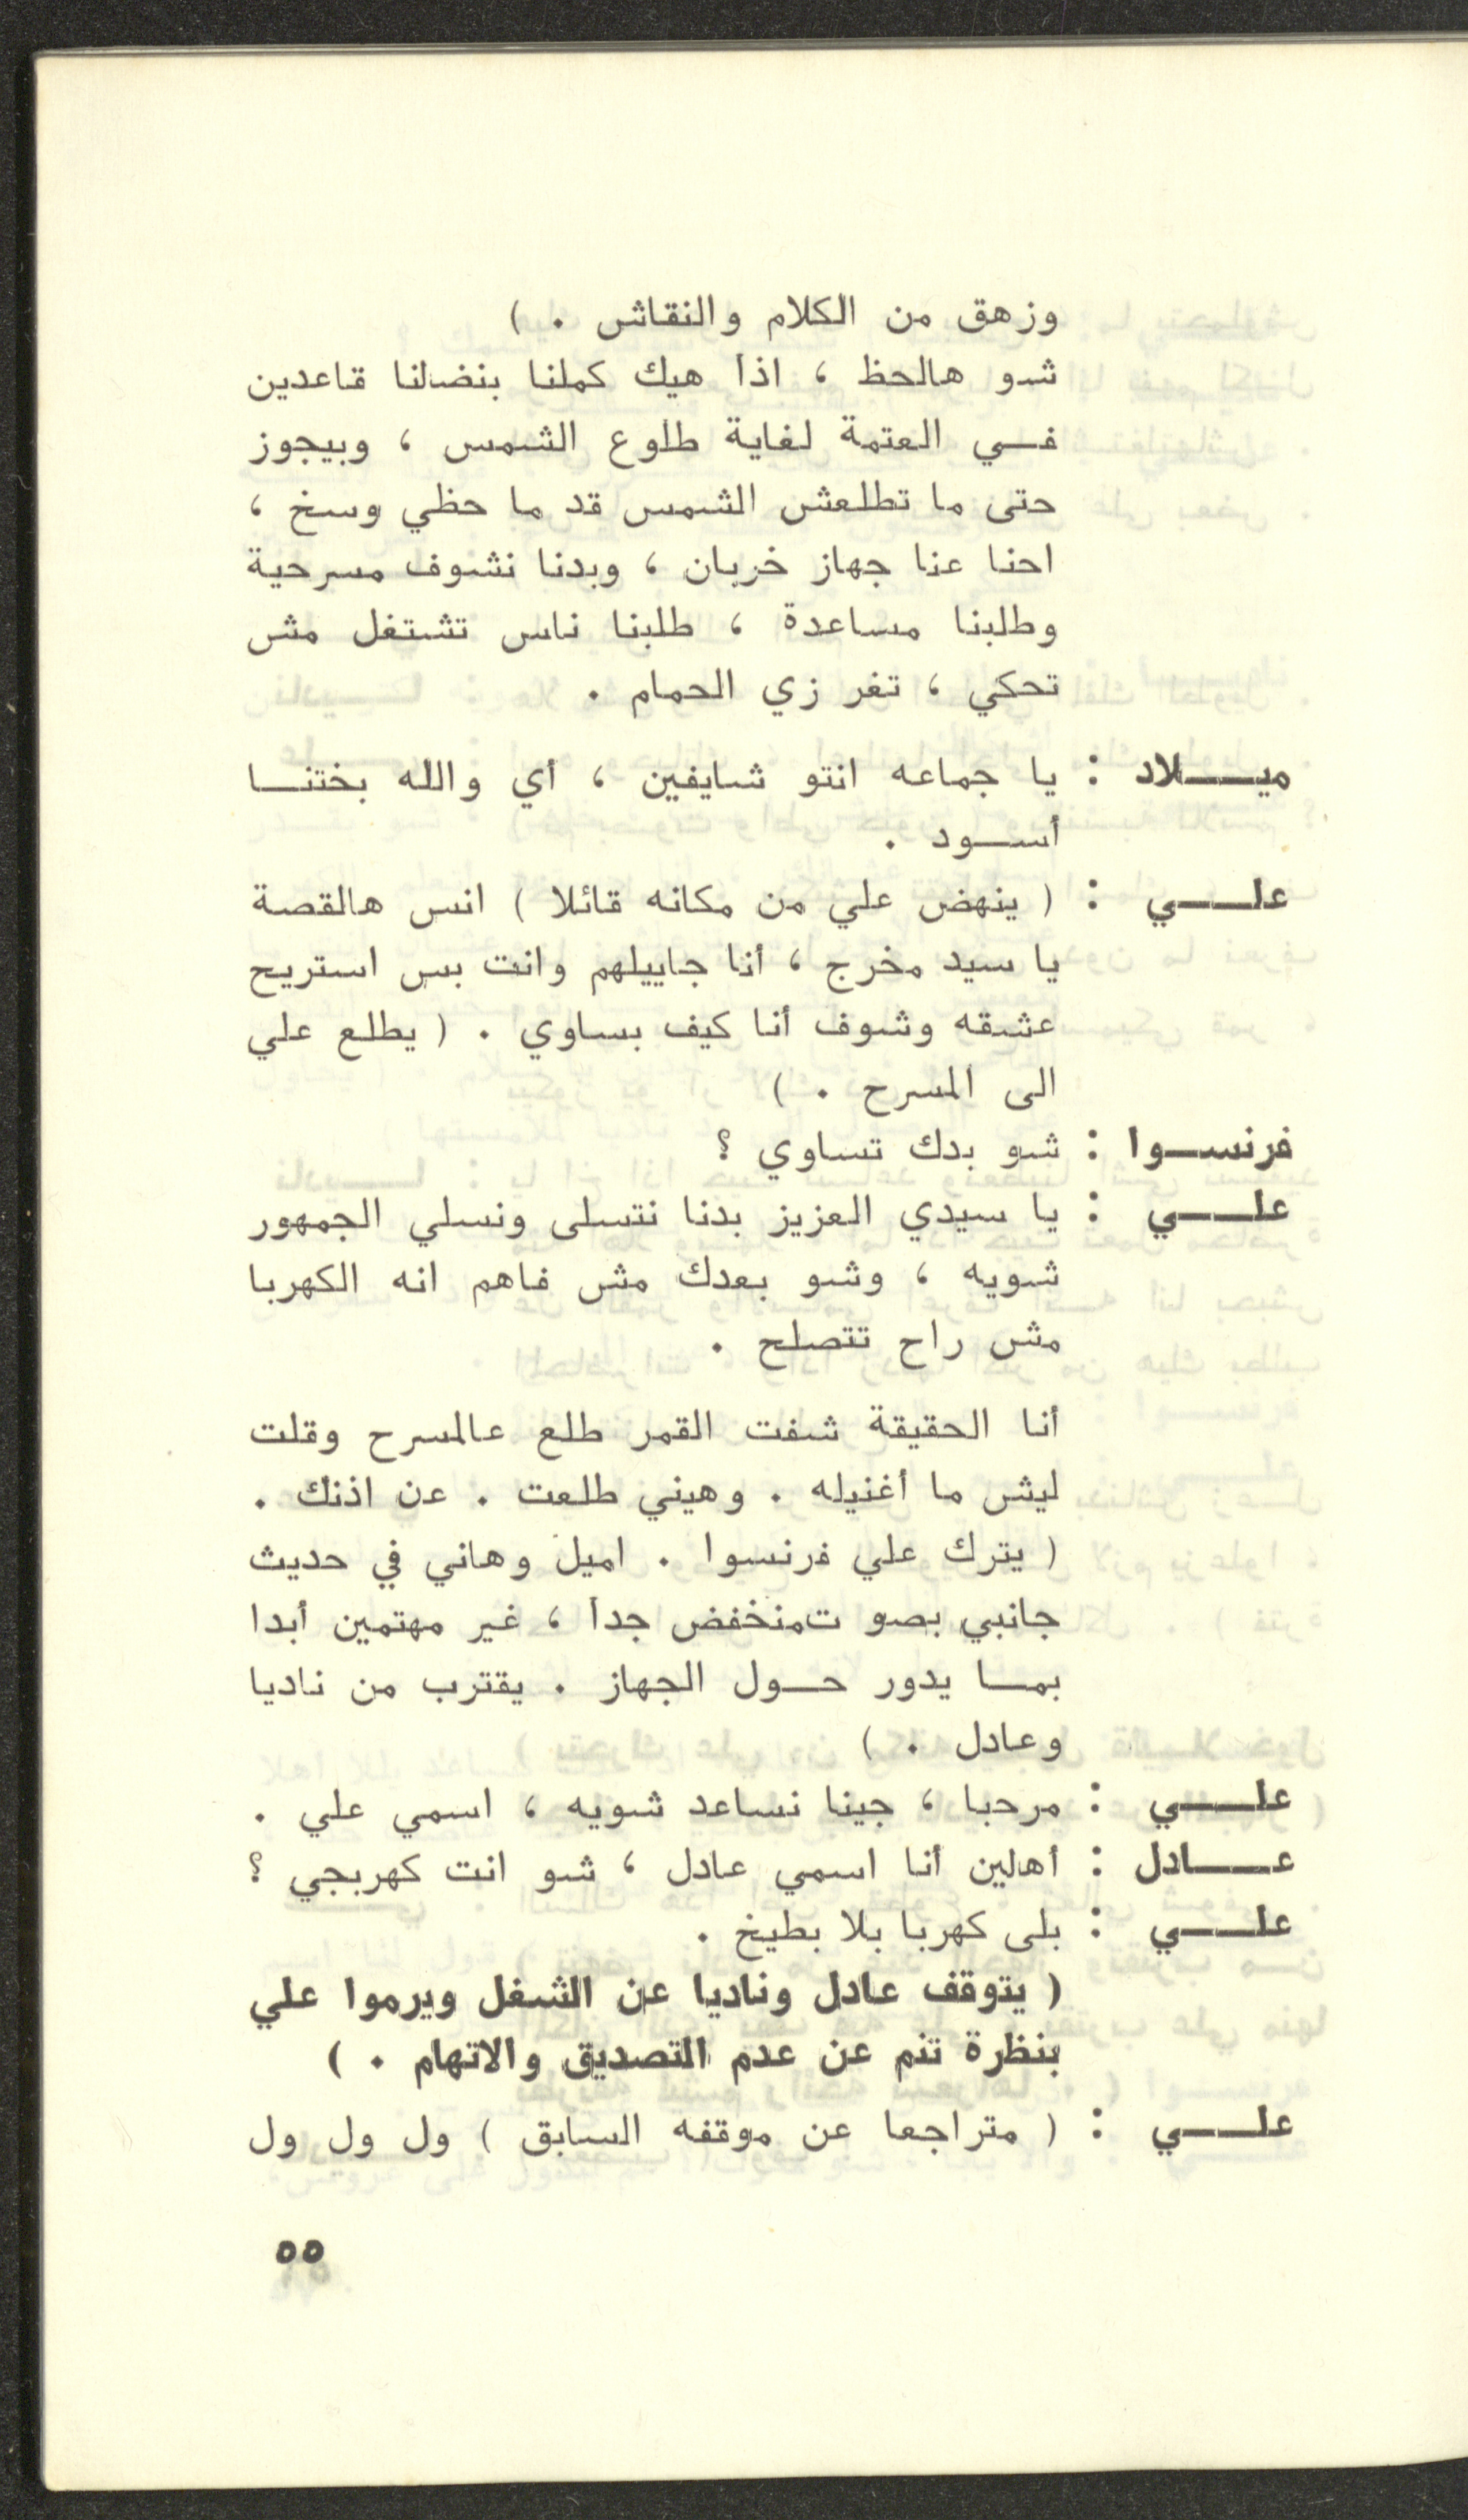 وزهق من الكلام والنقاش . )
شو هالحظ ، اذا هيك كملنا بنضلنا قاعدين
في العتمة لغاية طلوع الشمس ، وبيجوز
حتى ما تطلعش الشمس قد ما حظي وسخ ،
احنا عنا جهاز خربان ، وبدنا نشوف مسرحية
وطلبنا مساعدة ، طلبنا ناس تشتغل مش
تحكي ، تغر زي الحمام .
ميلاد : يا جماعه انتو شايفين ، أي والله بختنا
أسود .
علي : ( ينهض علي من مكانه قائلا ) انس هالقصة
يا سيد مخرج ، أنا جاييلهم وانت بس استريح
عشقه وشوف أنا كيف بساوي . ( يطلع علي
الى المسرح . )
فرنسوا : شو بدك تساوي ؟
علي : يا سيدي العزيز بدنا نتسلى ونسلي الجمهور
شويه ، وشو بعدك مش فاهم انه الكهربا
مش راح تتصلح .
أنا الحقيقة شفت القمر طلع عالمسرح وقلت
ليش ما أغنيله . وهيني طلعت . عن اذنك .
( يترك علي فرنسوا . اميل وهاني في حديث
جانبي بصو تمنخفض جدا ، غير مهتمين أبدا
بما يدور حول الجهاز . يقترب من ناديا
وعادل . )
علي : مرحبا ، جينا نساعد شويه ، اسمي علي .
عادل : أهلين أنا اسمي عادل ، شو انت كهربجي ؟
علي : بلى كهربا بلا بطيخ .
( يتوقف عادل وناديا عن الشغل ويرموا علي
بنظرة تنم عن عدم التصديق والاتهام . )
علي : ( متراجعا عن موقفه السابق ) ول ول ول
٥٥